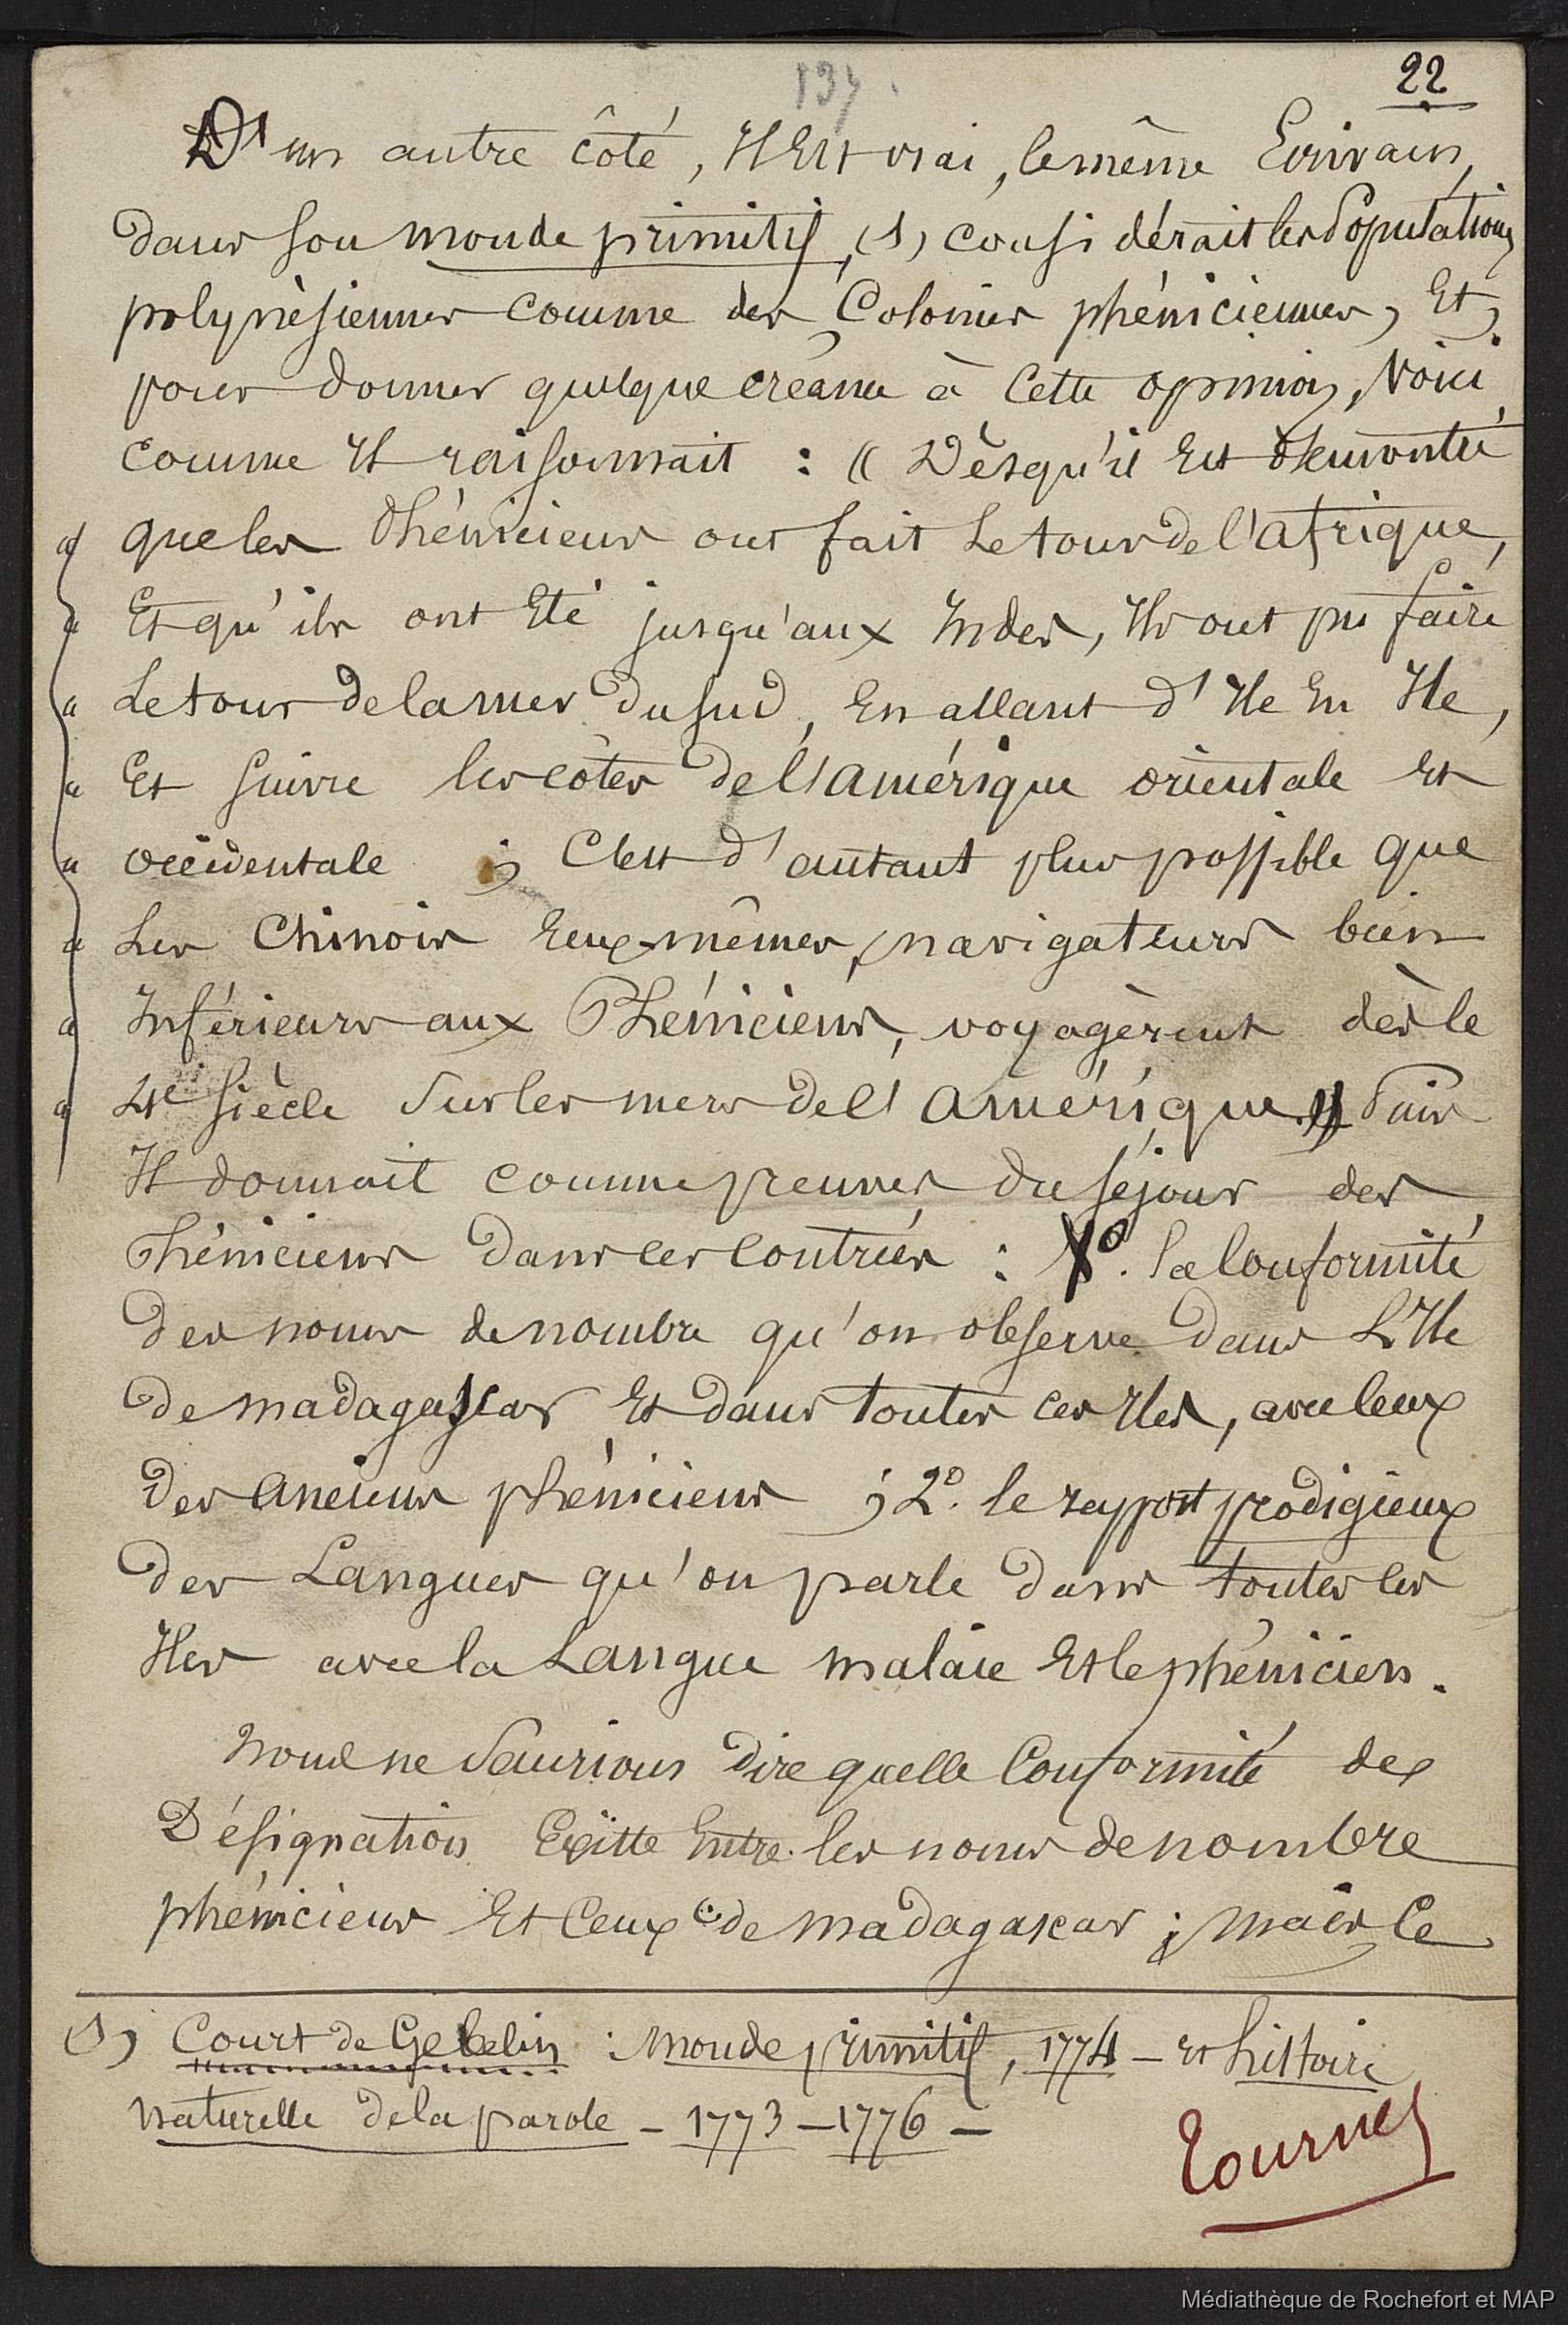 137.
22
D'un autre côté, Il Est vrai, le même Ecrivain,
dans son monde primitif, (1) considérait les Populations
polynésiennes comme des Colonies phéniciennes, Et,
pour donner quelque créance à cette opinion, Voici
comme Il raisonnait : « Dès qu'il Est démontré
« que les Phéniciens ont fait Le tour de l'afrique,
« Et qu'ils ont Eté jusqu'aux Indes, Ils ont pu faire
« Le tour de la mer du Sud, En allant d'Ile En Ile,
« Et suivre les côtes de l'amérique orientale Et
« occidentale ; C'est d'autant plus possible que
« Les Chinois Eux-mêmes, navigateurs bien
« Inférieurs aux Phéniciens, voyagèrent dès le
« 4e Siècle Sur les mers de l'amérique. » Puis
Il donnait comme preuves du séjour des
Phéniciens dans ces Contrées : 1º. la Conformité
des noms de nombre qu'on observe dans L'Ile
de madagascar Et dans toutes ces Iles, avec ceux
des anciens phéniciens ; 2º. le rapport prodigieux
des Langues qu'on parle dans toutes les
Iles avec la Langue malaie Et le phénicien.
Nous ne Saurions dire quelle Conformité de
Désignation Existe Entre les noms de nombre
phéniciens Et Ceux de madagascar ; mais Ce
(1) Court de Gebelin : monde primitif, 1774 — Et histoire
naturelle de la parole — 1773 — 1776 —
Tournez
Médiathèque de Rochefort et MAP